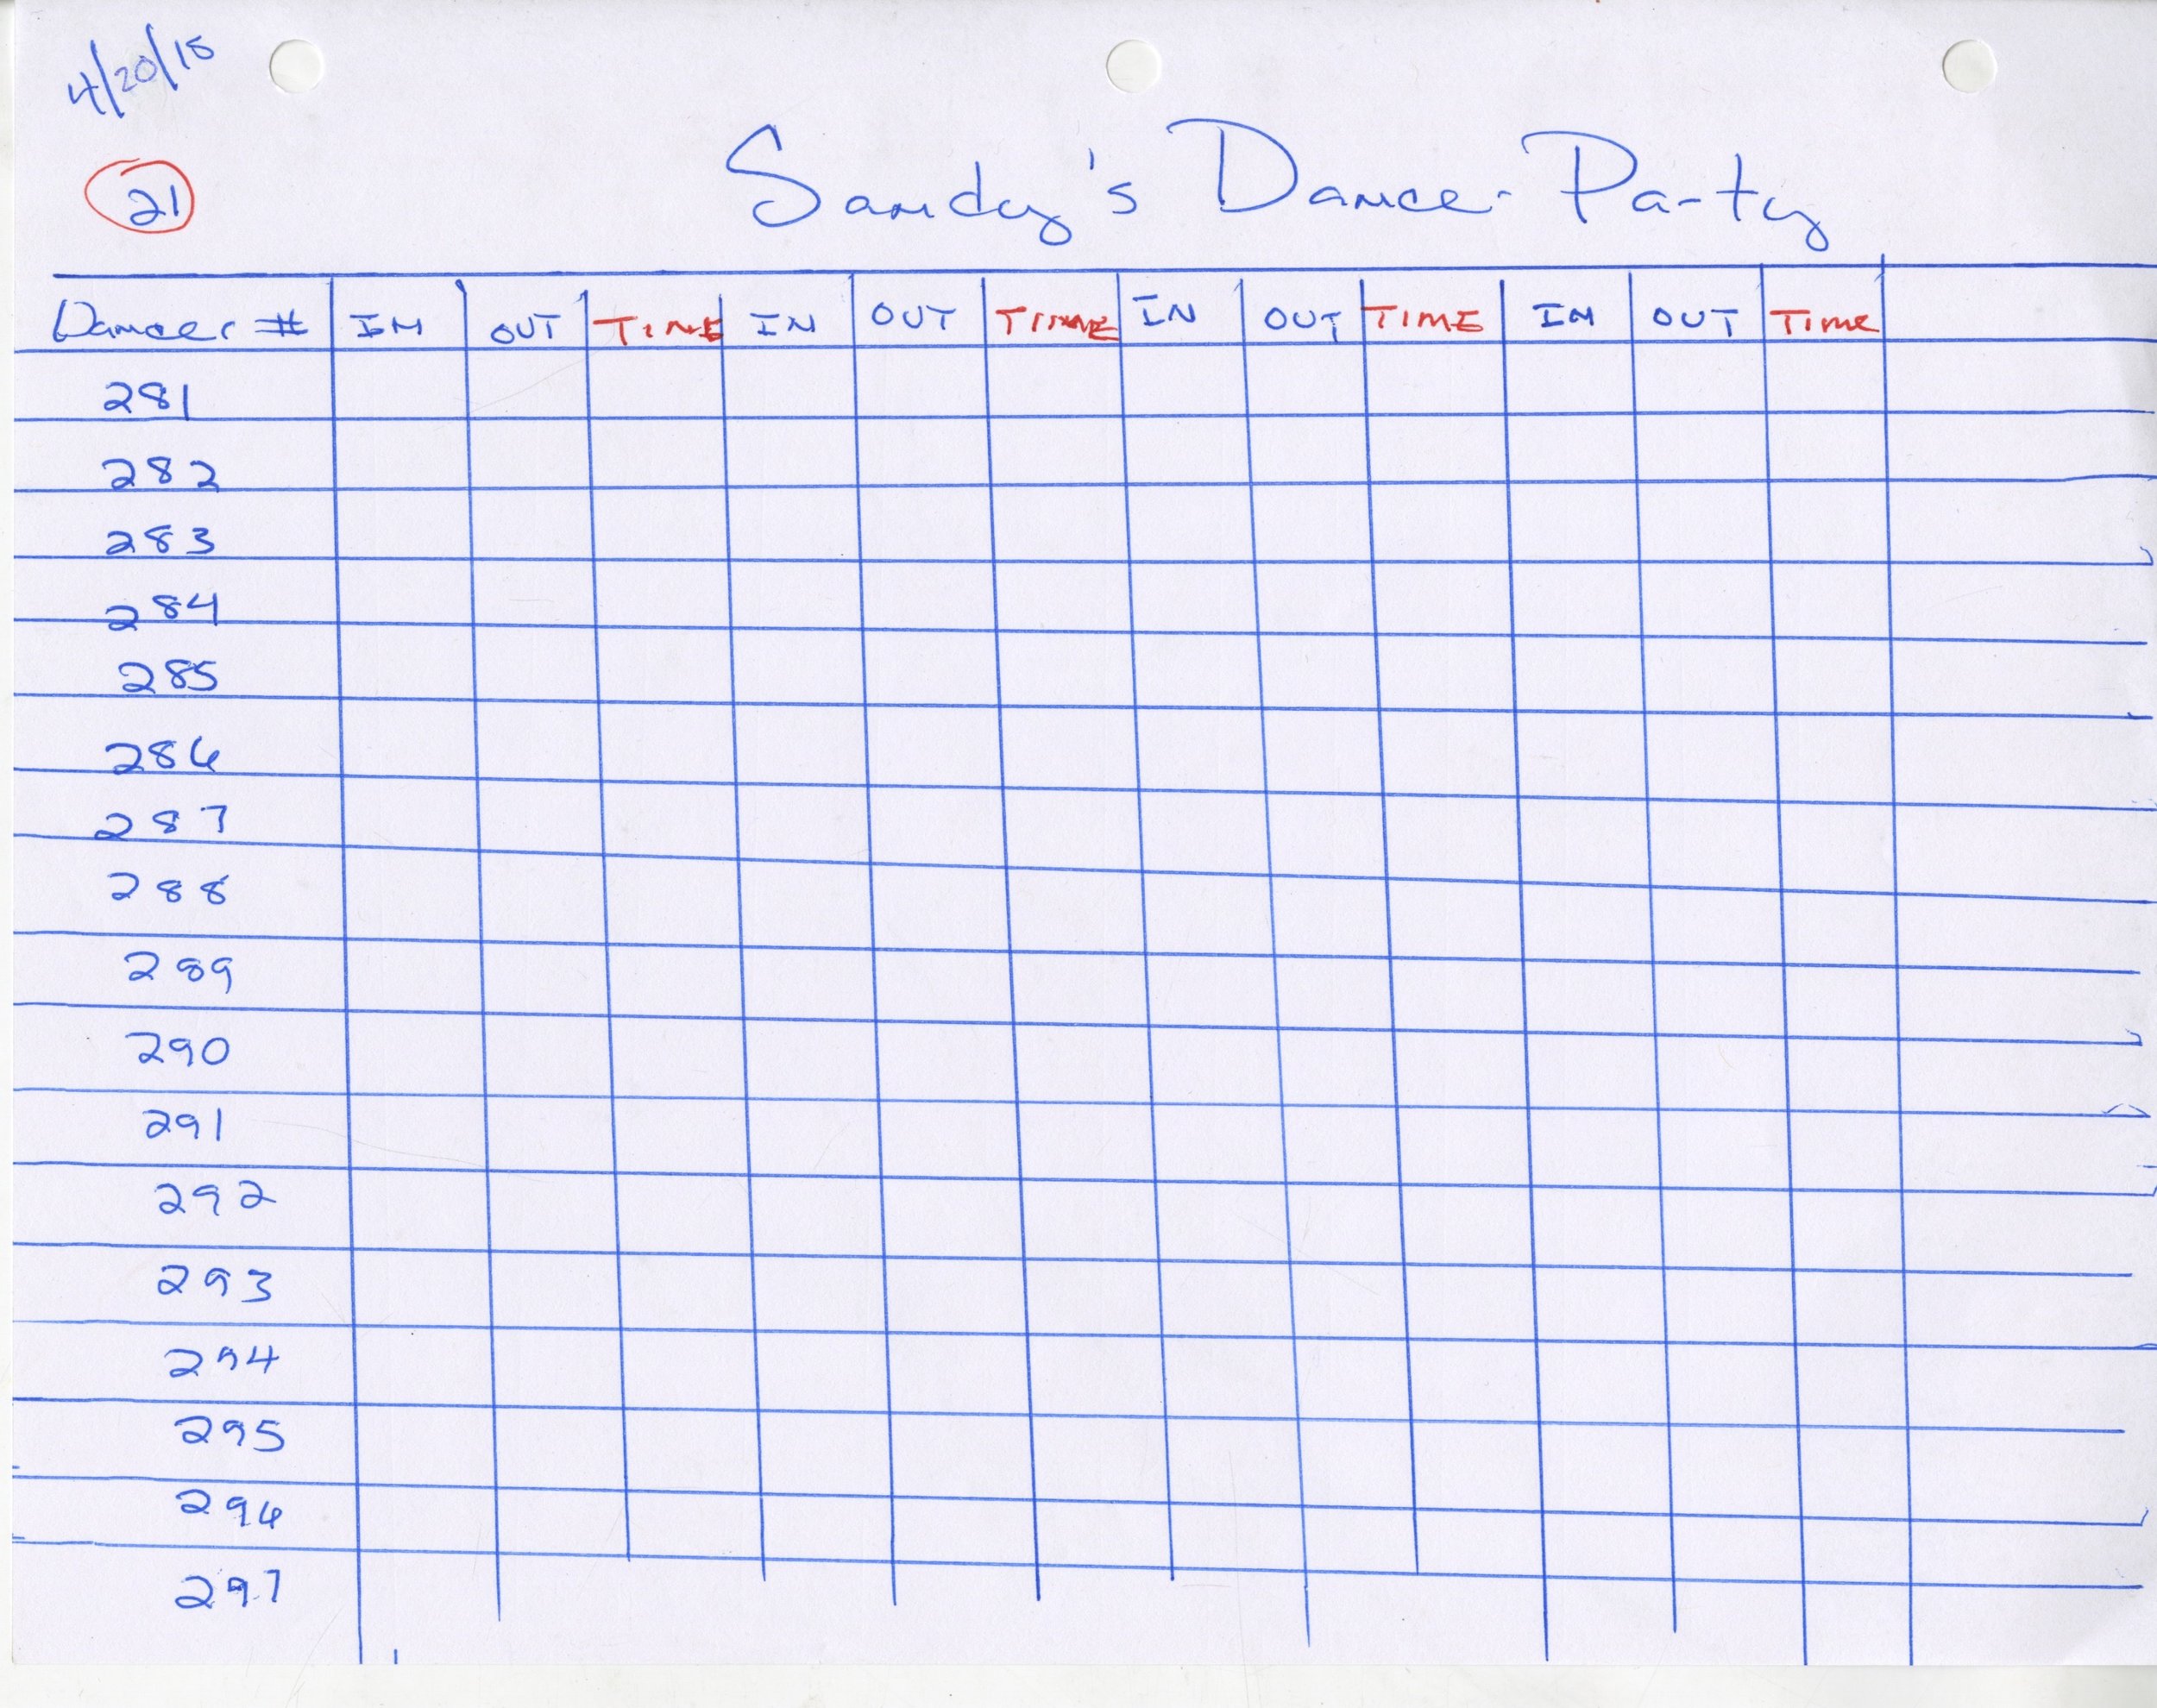 4/20/18
21
Sandy's Dance-Party
Dancer # IN OUT TIME IN OUT TIME IN OUT TIME IN OUT TIME
281
282
283
284
285
286
287
288
289
290
291
292
293
294
295
296
297